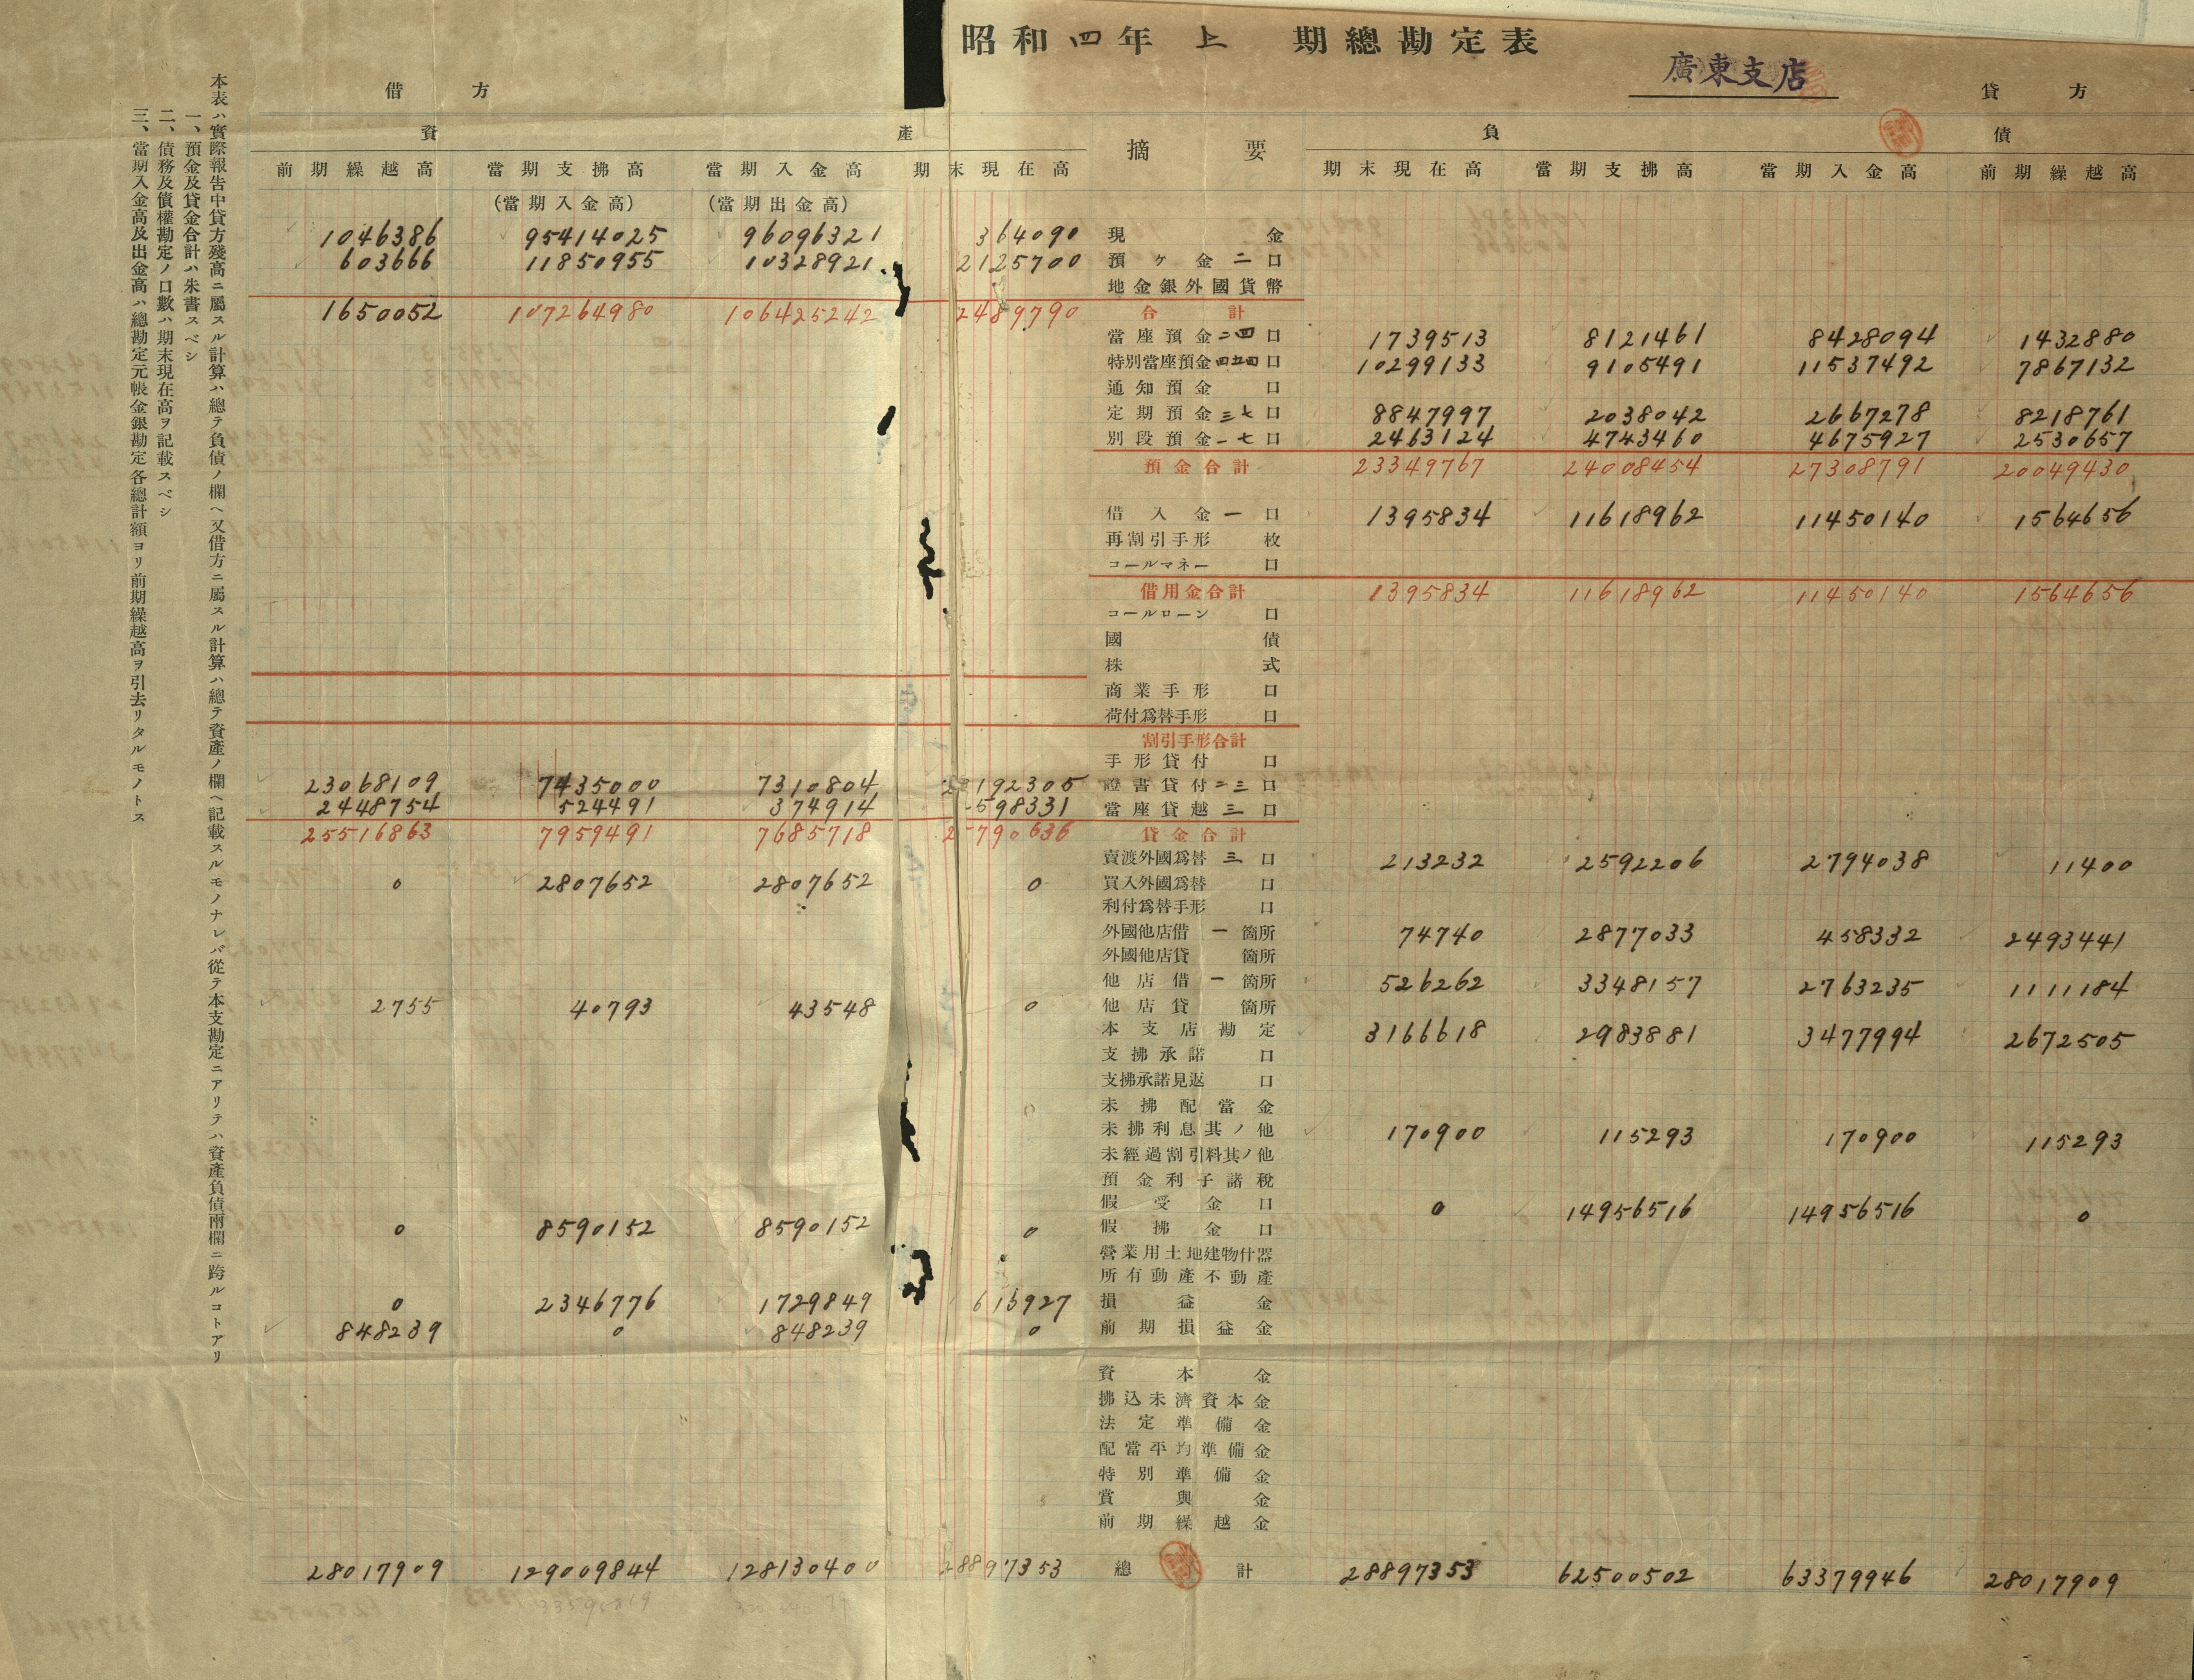 昭和四年上期總勘定表
廣東支店
借方
貸方
資產
摘要
負債
前期繰越高 當期支拂高 當期入金高 期末現在高 期末現在高 當期支拂高 當期入金高 前期繰越高
(當期入金高) (當期出金高)
1046386 95414025 96096321 364090 現金
603666 11850955 10328921 2125700 預ヶ金二口
地金銀外國貨幣
1650052 107264980 106425242 2489790 合計
當座預金二四口 1739513 8121461 8428094 1432880
特別當座預金四五四口 10299133 9105491 11537492 7867132
通知預金口
定期預金三七口 8847997 2038042 2667278 8218761
別段預金一七口 2463124 4743460 4675927 2530657
預金合計 23349767 24008454 27308791 20049430
借入金一口 1395834 11618962 11450140 1564656
再割引手形枚
コールマネー口
借用金合計 1395834 11618962 11450140 1564656
コールローン口
國債
株式
商業手形口
荷付爲替手形口
割引手形合計
手形貸付口
23068109 7435000 7310804 23192305 證書貸付二三口
2448754 524491 374914 598331 當座貸越三口
25516863 7959491 7685718 25790636 貸金合計
賣渡外國爲替三口 213232 2592206 2794038 11400
0 2807652 2807652 0 買入外國爲替口
利付爲替手形口
外國他店借一箇所 74740 2877033 458332 2493441
外國他店貸箇所
他店借一箇所 526262 3348157 2763235 1111184
2755 40793 43548 0 他店貸箇所
本支店勘定 3166618 2983881 3477994 2672505
支拂承諾口
支拂承諾見返口
未拂配當金
未拂利息其ノ他 170900 115293 170900 115293
未經過割引料其ノ他
預金利子諸稅
假受金口 0 14956516 14956516 0
0 8590152 8590152 0 假拂金口
營業用土地建物什器
所有動產不動產
0 2346776 1729849 616927 損益金
848239 0 848239 0 前期損益金
資本金
拂込未濟資本金
法定準備金
配當平均準備金
特別準備金
賞與金
前期繰越金
28017909 129009844 128130400 28897353 總計 28897353 62500502 63379946 28017909
本表ハ實際報告中貸方殘高ニ屬スル計算ハ總テ負債ノ欄ヘ又借方ニ屬スル計算ハ總テ資產ノ欄ヘ記載スルモノナレバ從テ本支勘定ニアリテハ資產負債兩欄ニ跨ルコトアリ
一、預金及貸金合計ハ朱書スベシ
二、債務及債權勘定ノ口數ハ期末現在高ヲ記載スベシ
三、當期入金高及出金高ハ總勘定元帳金銀勘定各總計額ヨリ前期繰越高ヲ引去リタルモノトス